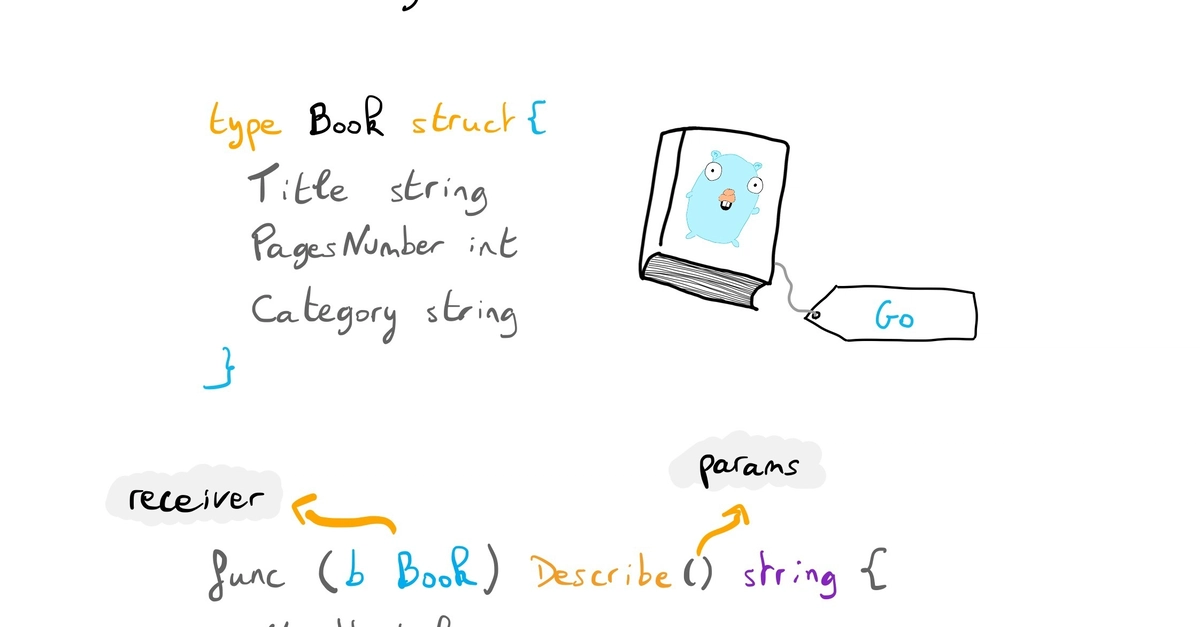 type Book struct {
Title string
PagesNumber int
Category string
}
Go
params
receiver
func (b Book) Describe() string {